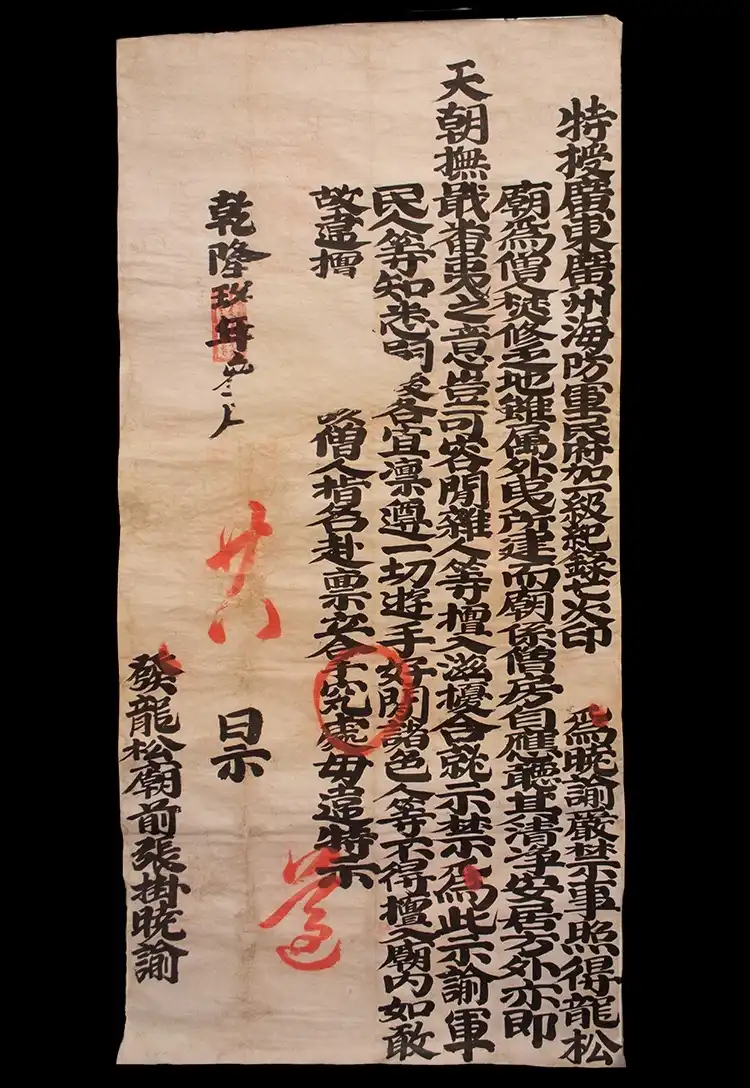 特授廣東廣州海防軍民府加一級紀錄七次印 為曉諭嚴禁事照得龍松
廟為僧人焚修之地雖屬外夷所建而廟係僧房自應聽其清淨安居方外亦即
天朝撫戢番夷之意豈可容閒雜人等擅入滋擾合就示禁為此示諭軍
民人等知悉嗣後各宜凜遵一切遊手好閒諸色人等不得擅入廟內如敢
故違擅 僧人指名赴稟立 究處毋違特示
遵
乾隆玖年 廿八 日示
發龍松廟前張掛曉諭